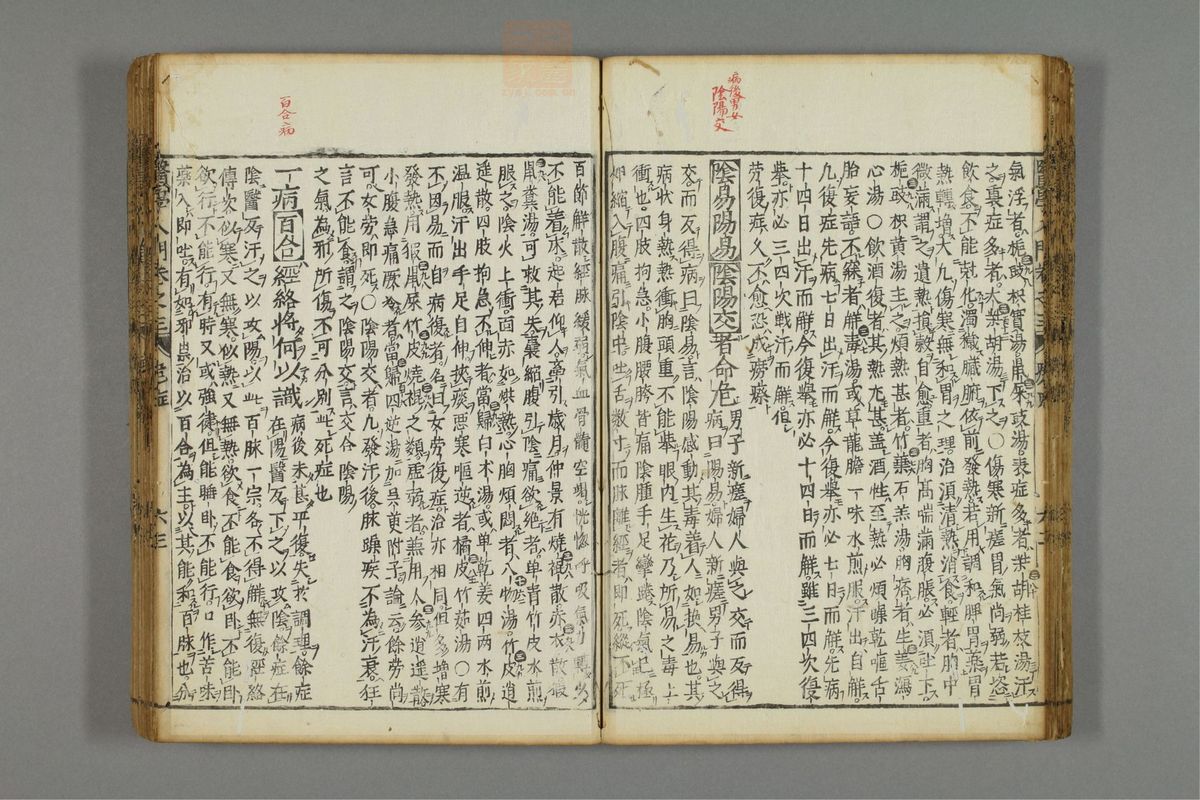 病後男女
陰陽交
氣浮者梔豉枳實湯鼠屎豉湯裏症多者柴胡桂枝湯汗
之裏症多者大柴胡湯下之〇傷寒新瘥胃氣尚弱若恣
飲食不能尅化濁穢臓腑依前發熱若用調和脾胃藥胃
熱輾增大凡傷寒無和胃之理治須清熱消食輕者腹中
微滿謂之遺熱損穀自愈重者胸高喘滿腹脹必須吐下
梔豉枳黄湯主之煩熱甚者竹葉石羔湯胸痞者生姜瀉
心湯〇飲酒復者其熱尤甚盖酒性至熱必煩噪乾嘔舌
胎妄語不縁者解毒湯或草龍膽一味水煎服汗出自解
凡復症先病七日出汗而解今復擧亦必七日而解先病
十四日出汗而解今復擧亦必十四日而解雖三四次復
擧亦必三四次戰汗而解但
勞復症久不愈恐成癆瘵
陰易陽易陰陽交者命危男子新瘥婦人與之交而反得
病曰陽易婦人新瘥男子與之
交而反得病曰陰易言陰陽感動其毒着人如換易也其
病状身熱熱衝胸頭重不能擧眼内生花乃所易之毒上
衝也四肢拘急小腹腰胯皆痛陰腫手足攣踡陰氣已極
卵縮入腹痛引陰中吐舌数寸而脉離經者即死縱不死
百節解散經脉緩弱氣血骨髓空竭恍惚呼吸氣力
不能着床起居仰人牽引歳月仲景有焼裩散赤衣散猳
鼠糞湯可救其失囊縮腹引陰痛欲絶者单青竹皮水煎
服之陰火上衝面赤如烘熱心胸煩悶者八物湯竹皮逍
遥散四肢拘急不伸者當歸白术湯或单乾姜四两水煎
温服汗出手足自伸挾痰惡寒嘔逆者橘皮竹茹湯〇有
不因易而自病復者名曰女勞復症治亦相同但多增寒
發熱用猳鼠屎竹皮焼裩之類虚弱者兼用人参逍遥散
小腹急痛厥者當歸四逆湯加呉茰附子論云餘勞尚
可女勞即死〇陰陽交者凡發汗後脉躁疾不為汗衰狂
言不能食謂之陰陽交言交合陰陽
之氣為邪所傷不可分別此死症也
百合病
一病百合經絡將何以識病後未甚平復失於調理餘症在
陰醫反汗之以攻陽以此百脉一宗各不得解無復經絡
在陽醫反下之以攻陰餘症在
傳次欲寒又無寒似熱又無熱欲食不能食欲卧不能卧
欲行不能行有時又或強徤但能睡卧不能行口作苦味
藥入即吐有如邪祟治以百合為主以其能和百脉也
醫學入門卷之三
六三